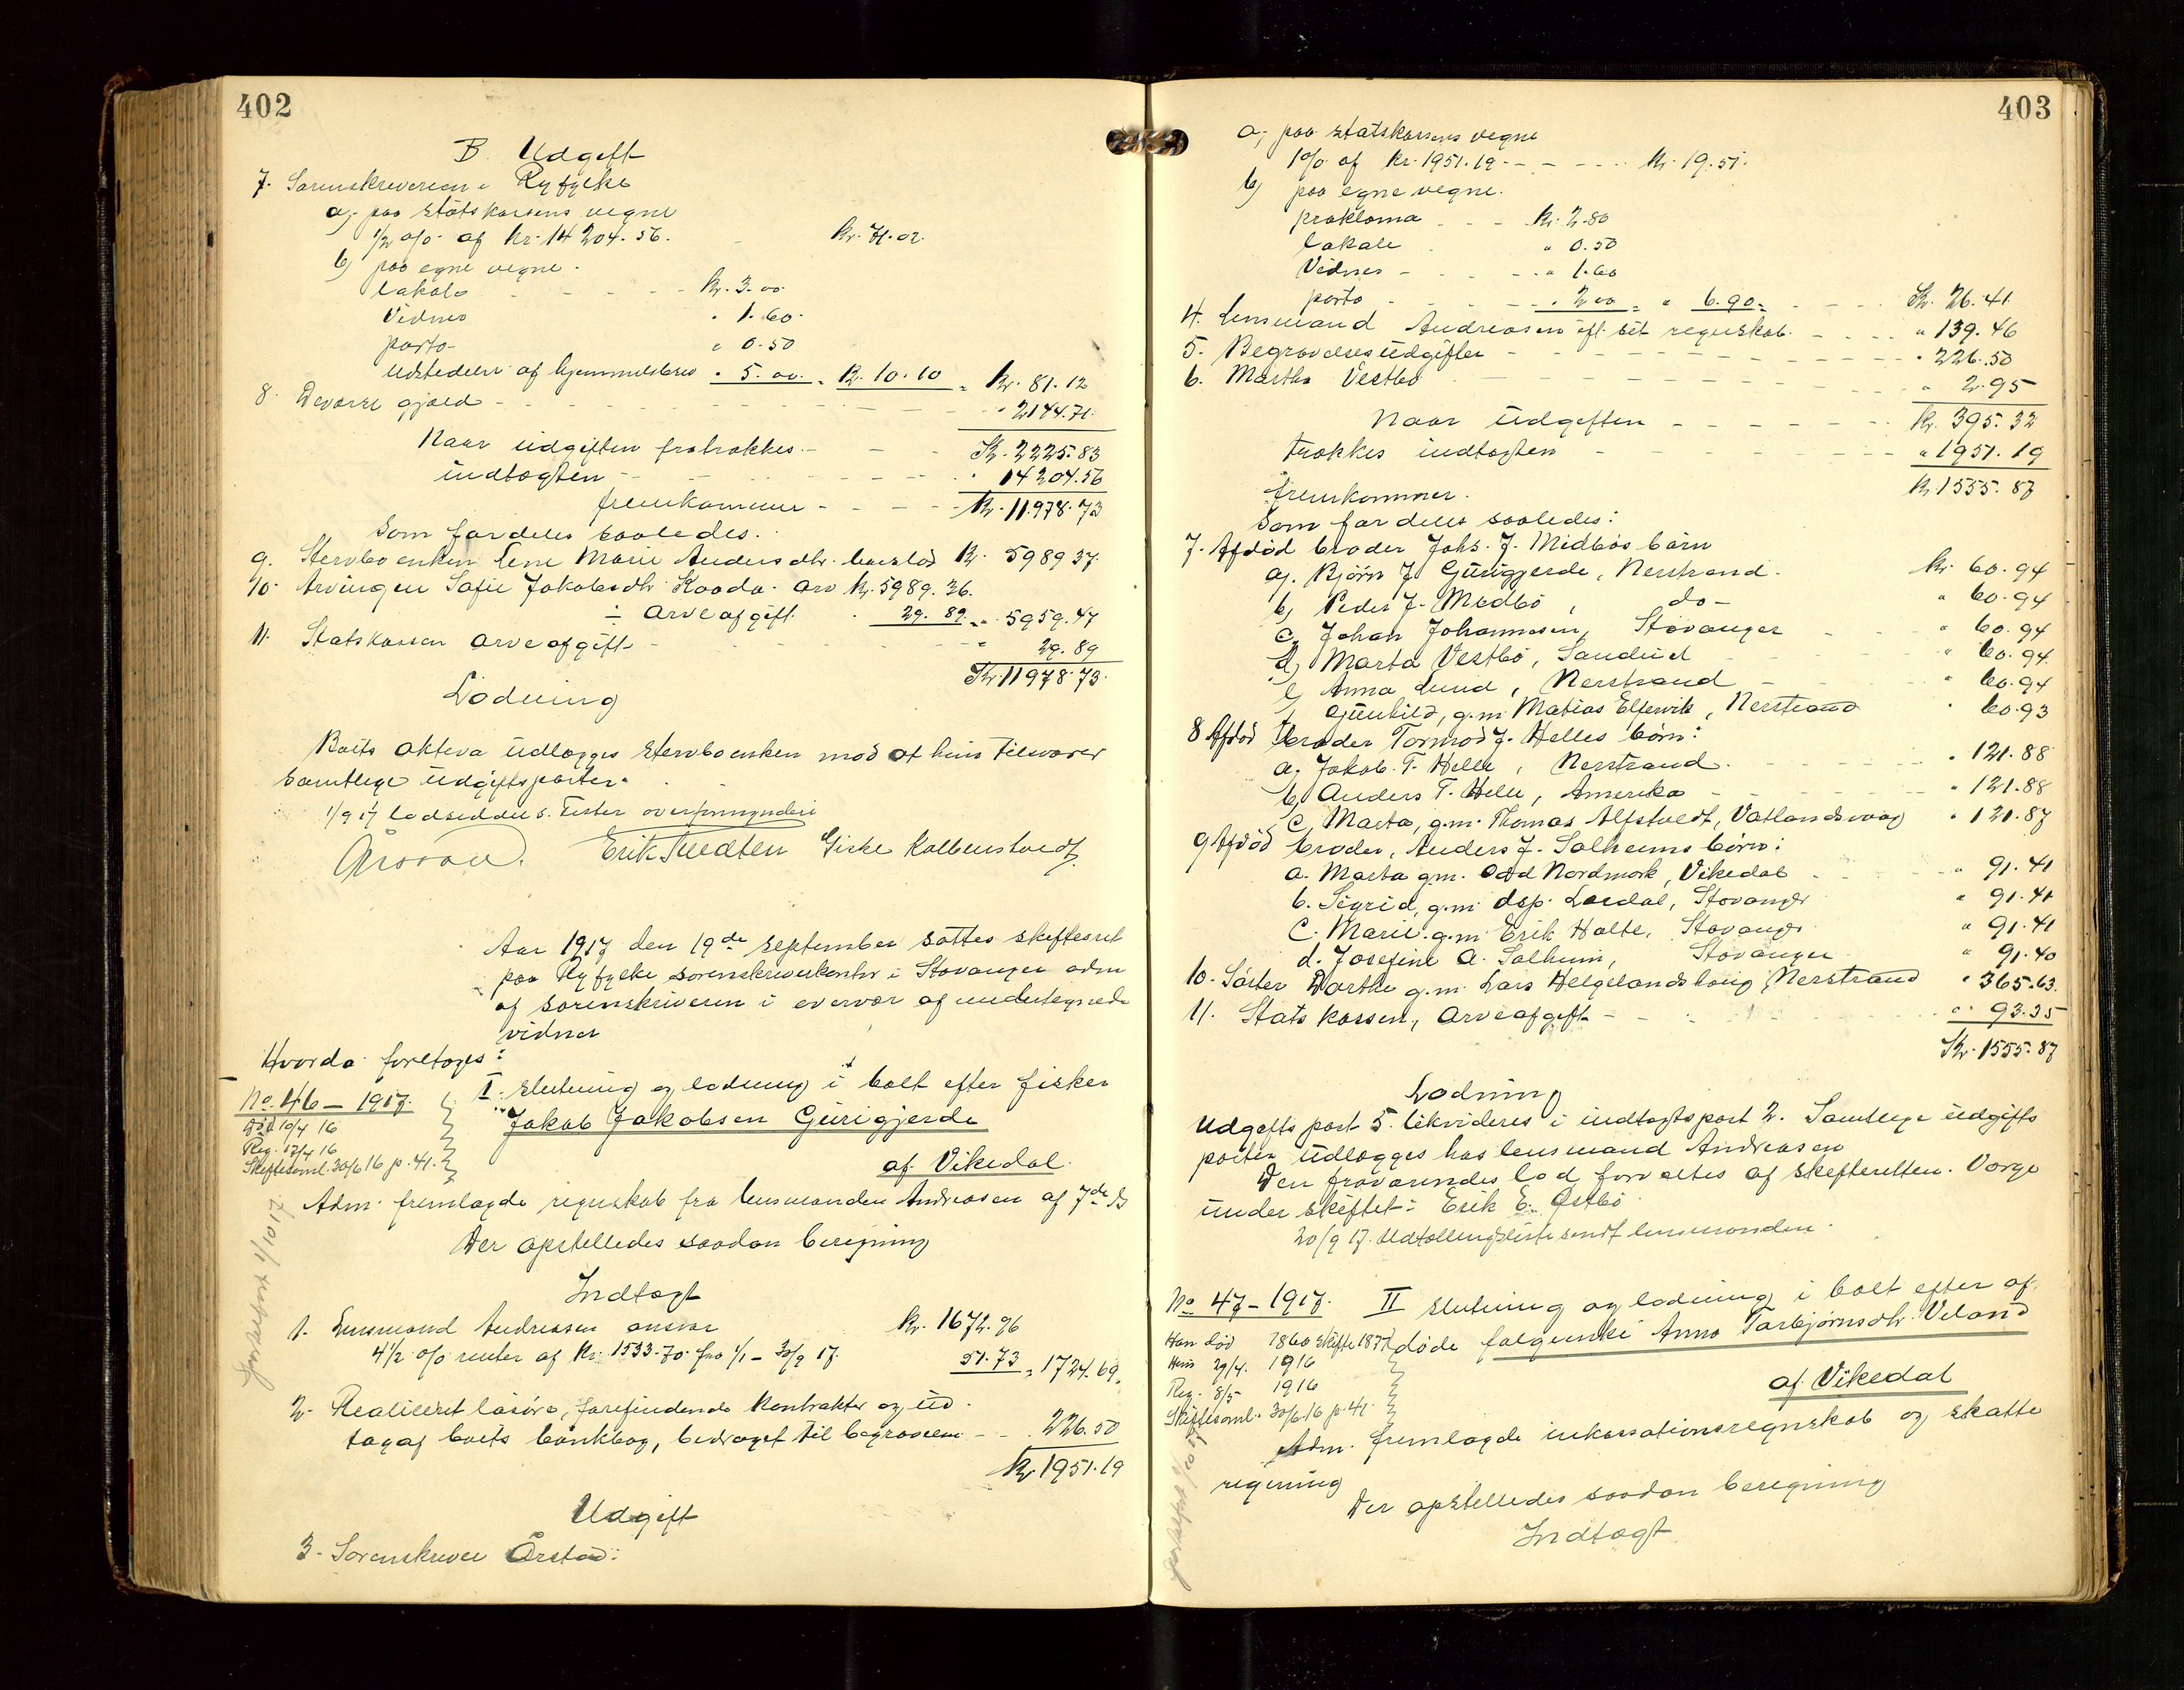 402
B. Udgift
7. Sorenskriveren i Ryfylke
a, paa statskassens vegne
1/2 o/o af kr. 14204.56. kr. 71.02.
b) paa egne vegne.
lakale kr. 3.00.
Vidner " 1.60.
porto " 0.50
Udstedelse af hjemmelsbrev " 5.00. = kr. 10.10 = kr. 81.12
8. Devarre gjæld " 2144.71.
Naar udgiften fratrækkes. Kr. 2225.83
indtægten " 14204.56
fremkommer kr. 11978.73
Som fordeles saaledes.
9. Stervboenken Lene Marie Andersdtr. boeslod kr. 5989.37.
10. Arvingen Sofie Jakobsdtr. Kaada. arv kr. 5989.36.
÷ arveafgift. 29.89 = " 5959.47
11. Statskassen arveafgift " 29.89
Kr. 11978.73.
Lodning
Boets aktiva udlægges stervboenken mod at hun tilsvarer
samtlige udgiftsposter.
1/9 17 lodseddel s. Tister overformynderi
Årstad. Erik Tuedten Girke Kolbenstvedt
Aar 1917 den 19de september sattes skifteret
paa Ryfylke sorenskriverkontor i Stavanger adm
af sorenskriveren i overvær af undertegnede
vidner
Hvorda foretoges:
No. 46 - 1917.
Død 10/4 16
Reg. 17/4 16
Skiftesaml. 30/6 16 p. 41.
I. slutning og lodning i boet efter fisker
Jakob Jakobsen Gurigjerde
af Vikedal.
Adm. fremlagde regnskab fra lensmanden Andreasen af 7de ds
Der opstilledes saadan beregning
Indtægt
1. Lensmand Andreasen ansvar kr. 1672.96
4 1/2 o/o renter af kr. 1533.70 fra 1/1 - 30/9 17. 51.73 = 1724.69.
2. Realiseret løsøre, forefindende kontrakter og ud-
tag af boets bankbog, bedraget til begravelsen " 226.50
kr. 1951.19
Udgift
3. Sorenskriver Årstad:
403
a, paa statskassens vegne
1 o/o af kr. 1951.19 kr. 19.51.
b) paa egne vegne.
proklama kr. 2.80
lakale " 0.50
Vidner " 1.60
porto " 2.00 = " 6.90 = Kr. 26.41
4. Lensmand Andreasen eft. sit regnskab. " 139.46
5. Begravelsesudgifter " 226.50
6. Martha Vestbø " 2.95
Naar Udgiften kr. 395.32
trækkes indtægten " 1951.19
fremkommer. kr. 1555.87
Som fordeles saaledes:
7. Afdød broder Johs. J. Midbøs børn
a). Bjørn J. Gurigjerde, Nerstrand. kr. 60.94
b) Peder J. Medbø, do " 60.94
c, Johan Johannesen, Stavanger " 60.94
d) Marta Vestbø, Sandeid " 60.94.
e Anna Lund, Nerstrand " 60.94
f Gunhild, g.m. Matias Elfsvik, Nerstrand " 60.93
8 Afdød broder Tormod J. Helles børn:
a, Jakob T. Helle, Nerstrand. " 121.88
b, Anders T. Helle, Amerika " 121.88
c, Marta, g.m. Thomas Alfstvedt, Vatlandsvaag " 121.87
9 Afdød broder, Anders J. Solheims børn:
a. Marta g.m. Odd Nordmork, Vikedal " 91.41
b. Sigrid, g.m. dsp. Lardal, Stavanger " 91.41
c. Marie g.m. Erik Halte, Stavanger " 91.41
d. Josefine A. Solheim, Stavanger " 91.40
10. Søster Dorthe g.m. Lars Helgelandshaug, Nerstrand " 365.63.
11. Statskassen, arveafgift " 93.35
Kr. 1555.87
Lodning
Udgifts post 5. likvideres i indtægtspost 2. Samtlige udgifts
poster udlægges hos lensmand Andreasen
Den fraværendes lod forvaltes af skifteretten. Værge
under skiftet: Erik E. Østbø
20/9 17. Udtællingsliste sendt lensmanden.
No 47 - 1917. II slutning og lodning i boet efter af-
døde følgeenke Anna Torbjørnsdtr. Veland
Han død 1860 skifte 1877
Hun 29/4. 1916
Reg. 8/5 1916
Skiftesaml. 30/6 16 p. 41.
af Vikedal
Adm. fremlagde inkassationsregnskab og skatte
regning
Der opstilledes saadan beregning
Indtægt